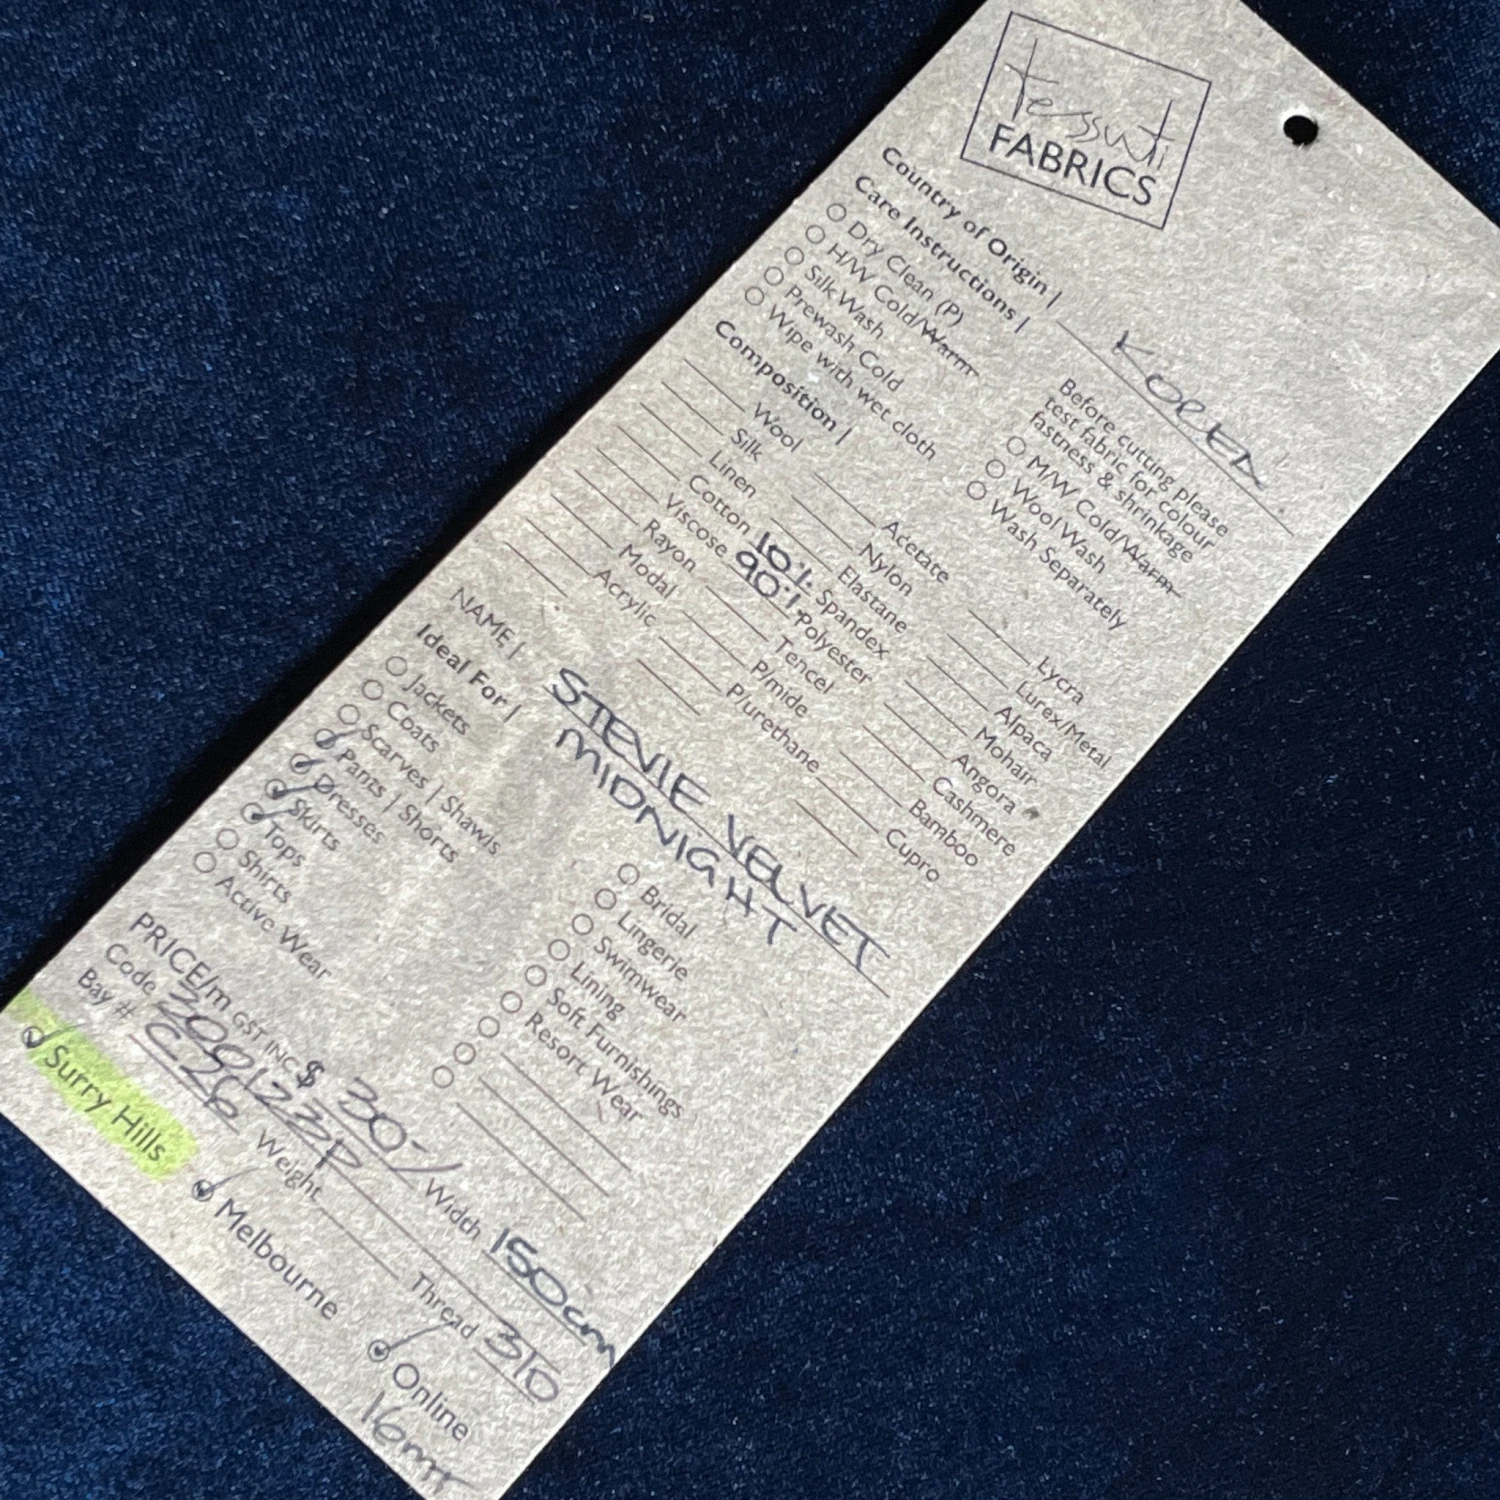 tessuti
FABRICS
Country of Origin | KOREA
Care Instructions |
Dry Clean (P)
H/W Cold/Warm
Silk Wash
Prewash Cold
Wipe with wet cloth
Before cutting please
test fabric for colour
fastness & shrinkage
M/W Cold/Warm
Wool Wash
Wash Separately
Composition |
Wool
Silk
Linen
Cotton
Viscose
Rayon
Modal
Acrylic
Acetate
Nylon
Elastane
10% Spandex
90% Polyester
Tencel
P/mide
P/urethane
Lycra
Lurex/Metal
Alpaca
Mohair
Angora
Cashmere
Bamboo
Cupro
NAME | STEVIE VELVET
MIDNIGHT
Ideal For |
Jackets
Coats
Scarves | Shawls
Pants | Shorts
Dresses
Skirts
Tops
Shirts
Active Wear
Bridal
Lingerie
Swimwear
Lining
Soft Furnishings
Resort Wear
PRICE/m GST INC $ 30-/ Width 150cm
Code 200123P
Bay # Weight Thread 310
Surry Hills Melbourne Online
16mt